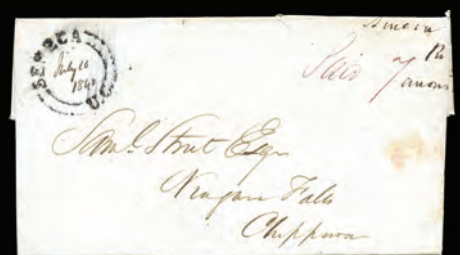 SENECA
July 10
1840
U.C.
Paid 7
Saml. Street Esqr
Niagara Falls
Chippawa